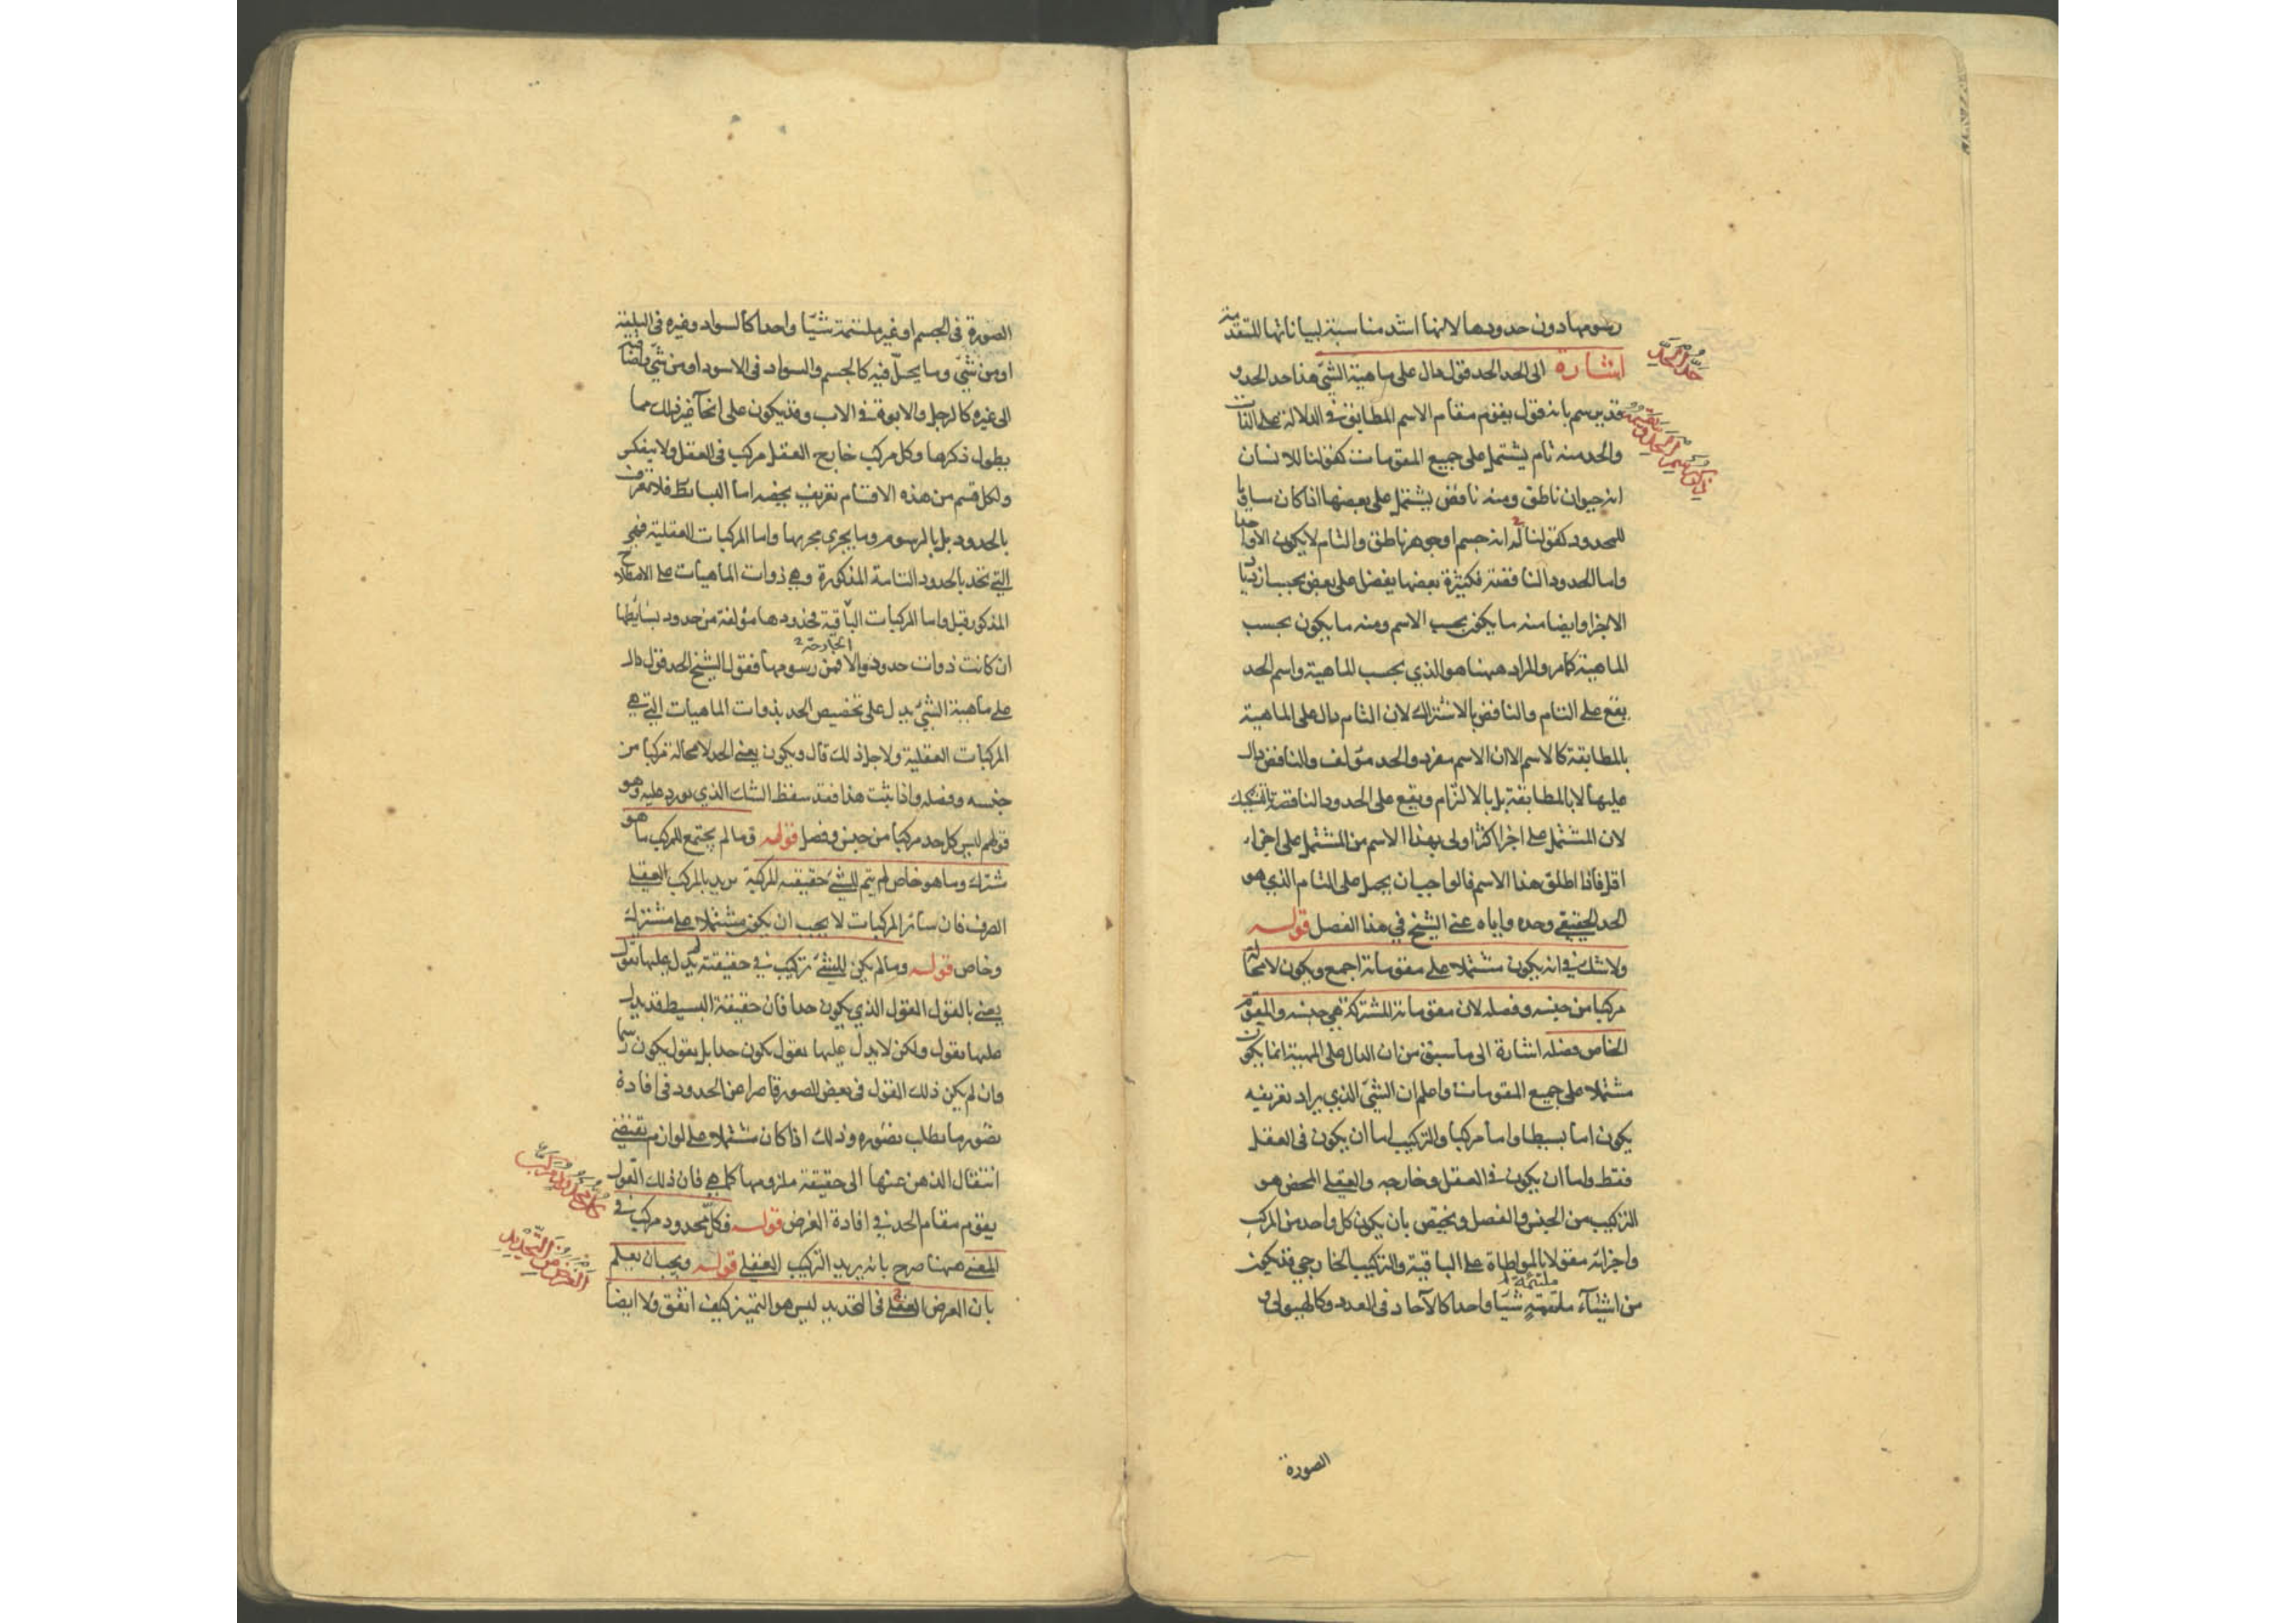 رسومها دون حدودها لانها اشد مناسبة لبياناتها المتقدمة
اشارة الى الحد الحد قول دال على ماهية الشئ هذا حد الحد و
قد يرسم بانه قول يقوم مقام الاسم المطابق في الدلالة على الذات
والحد منه تام يشتمل على جميع المقومات كقولنا للانسان
انه حيوان ناطق ومنه ناقص يشتمل على بعضها اذا كان مساويا
للمحدود كقولنا له انه جسم او جوهر ناطق والتام لا يكون الا واحدا
واما الحدود الناقصة فكثيرة بعضها يفضل على بعض بحسب ازدياد
الاجزا وايضا منه ما يكون بحسب الاسم ومنه ما يكون بحسب
الماهية كما مر والمراد ههنا هو الذي بحسب الماهية واسم الحد
يقع على التام والناقص بالاشتراك لان التام دال على الماهية
بالمطابقة كالاسم الا ان الاسم مفرد والحد مؤلف والناقص دال
عليها لا بالمطابقة بل بالالتزام ويقع على الحدود الناقصة بالتشكيك
لان المشتمل على اجزا اكثر اولى بهذا الاسم من المشتمل على اجزاء
اقل فاذا اطلق هذا الاسم فالواجب ان يحمل على التام الذي هو
الحد الحقيقي وحده واياه عنى الشيخ في هذا الفصل قوله
ولا شك في انه يكون مشتملا على مقوماته اجمع ويكون لا محالة
مركبا من جنسه وفصله لان مقوماته المشتركة هي جنسه والمقوم
الخاص فصله اشارة الى ما سبق من ان الدال على المهية انما يكون
مشتملا على جميع المقومات واعلم ان الشئ الذي يراد تعريفه
يكون اما بسيطا واما مركبا والتركيب اما ان يكون في العقل
فقط واما ان يكون في العقل وخارجه والعقلي المحض هو
التركيب من الجنس والفصل ويختص بان يكون كل واحد من المركب
واجزائه مقولا بالمواطاة على الباقية والتركيب الخارجي قد يكون
من اشياء ملتئمة شيئا واحدا كالآحاد في العدد وكالهيولى و
الصورة
حد الحد
الصورة في الجسم او غير ملتئمة شيئا واحدا كالسواد وغيره في البلقة
او من شئ وما يحل فيه كالجسم والسواد في الاسود او من شئ واضافته
الى غيره كالرجل والابوة في الاب وقد يكون على انحآ غير ذلك مما
يطول ذكرها وكل مركب خارج العقل مركب في العقل ولا ينعكس
ولكل قسم من هذه الاقسام تعريف يخصه اما البسائط فلا تعرف
بالحدود بل بالرسوم وما يجري مجريها واما المركبات العقلية فهي
التي تحد بالحدود التامة المذكورة وهي ذوات الماهيات على الاصطلاح
المذكور قبل واما المركبات الباقية فحدودها مؤلفة من حدود بسائطها
الخارجة
ان كانت ذوات حدود والا فمن رسومها فقول الشيخ الحد قول دال
على ماهية الشئ يدل على تخصيص الحد بذوات الماهيات التي هي
المركبات العقلية ولاجل ذلك قال ويكون يعنى الحد لا محالة مركبا من
جنسه وفصله واذا ثبت هذا فقد سقط الشك الذي يورد عليه وهو
قولهم ليس كل حد مركبا من جنس وفصل قوله وما لم يجتمع للمركب ما هو
مشترك وما هو خاص لم يتم للشئ حقيقته المركبة يريد بالمركب العقلي
الصرف فان سائر المركبات لا يجب ان يكون مشتملا على مشترك
وخاص قوله وما لم يكن للشئ تركيب في حقيقته لم يدل عليها بقول
يعنى بالقول القول الذي يكون حدا فان حقيقة البسيط قد يدل
عليها بقول ولكن لا يدل عليها بقول يكون حدا بل بقول يكون رسما
وان لم يكن ذلك القول في بعض الصور قاصرا عن الحدود في افادة
تصور ما يطلب تصوره وذلك اذا كان مشتملا على لوازم يقتضي
انتقال الذهن عنها الى حقيقة ملزومها كما هي فان ذلك القول
يقوم مقام الحد في افادة الغرض قوله فكل محدود مركب في
المعنى ههنا صرح بانه يريد التركيب العقلي قوله ويجب ان يعلم
بان الغرض في التحديد ليس هو التميز كيف اتفق ولا ايضا
كل محدود مركب
الغرض من التحديد